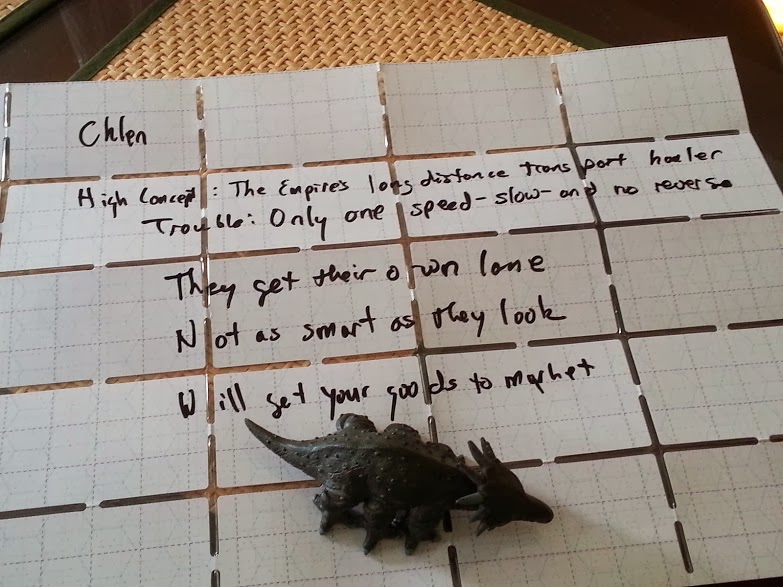 Chlen
High Concept: The Empire's long distance transport hauler
Trouble: Only one speed-slow-and no reverse
They get their own lane
Not as smart as they look
Will get your goods to market